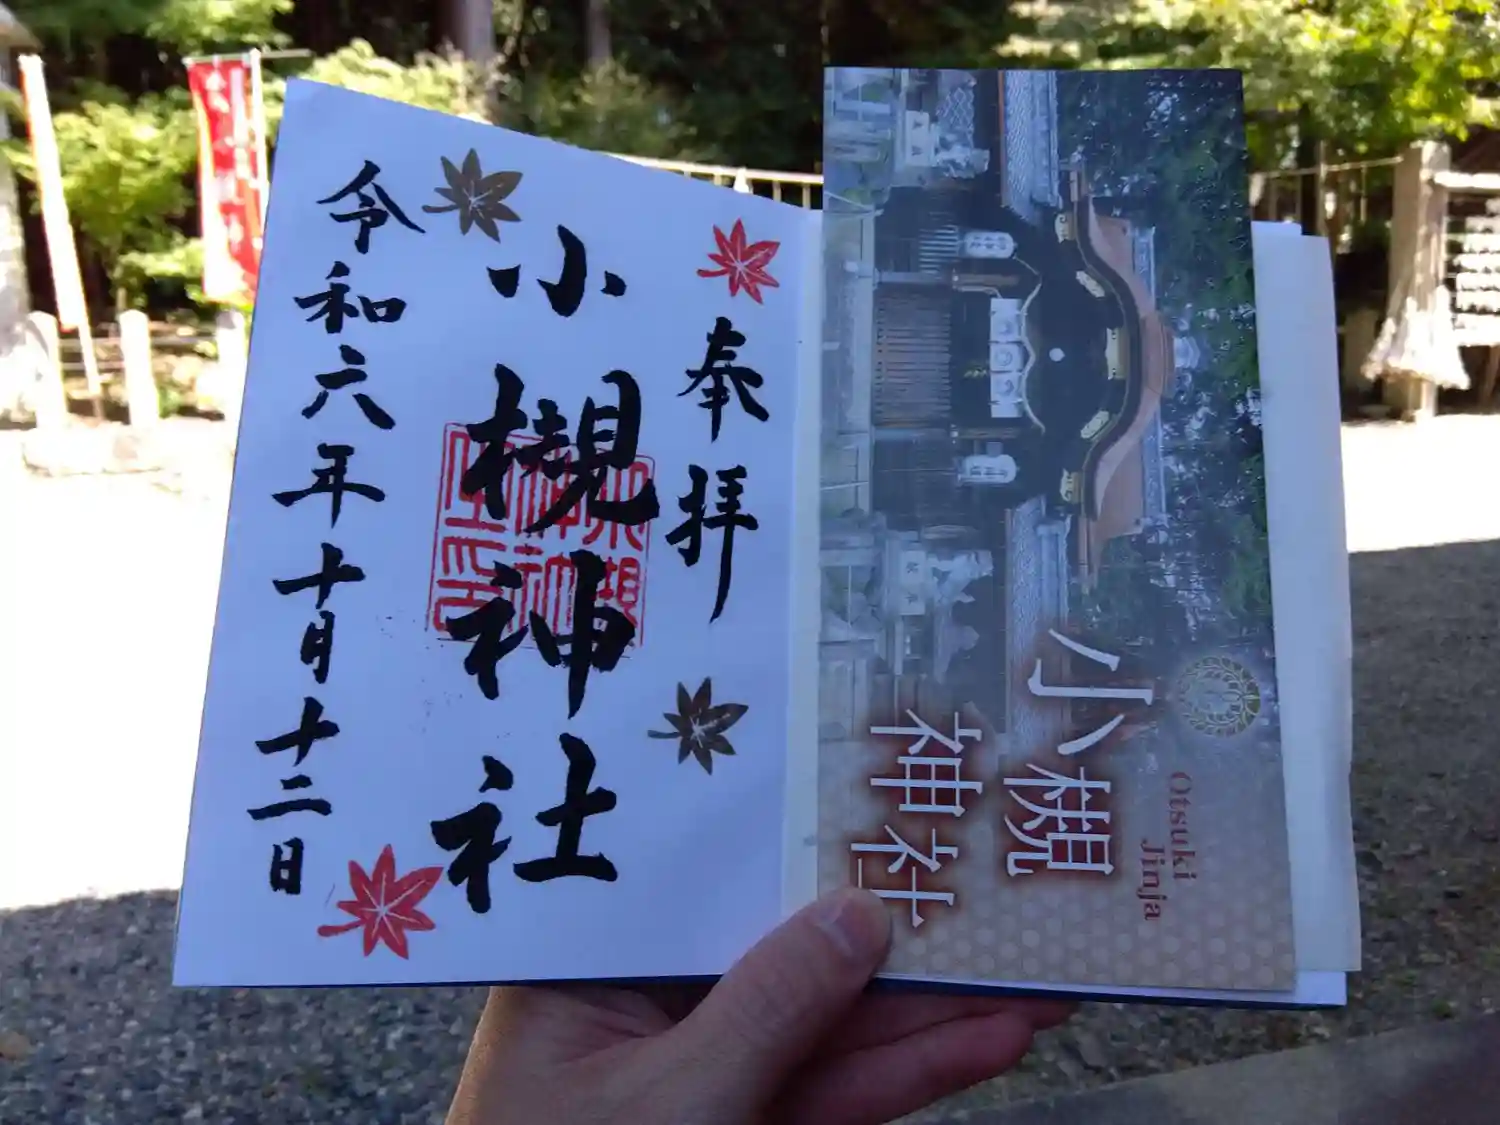 奉拝
小槻神社
令和六年十月十二日
小槻
神社
Otsuki
Jinja